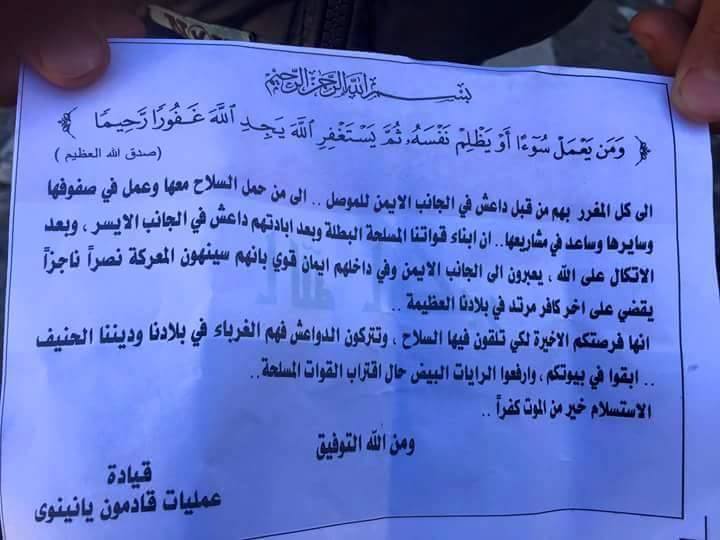 بسم الله الرحمن الرحيم
﴿ وَمَن يَعْمَلْ سُوٓءًا أَوْ يَظْلِمْ نَفْسَهُۥ ثُمَّ يَسْتَغْفِرِ ٱللَّهَ يَجِدِ ٱللَّهَ غَفُورًا رَّحِيمًا ﴾
(صدق الله العظيم )
الى كل المغرر بهم من قبل داعش في الجانب الايمن للموصل .. الى من حمل السلاح معها وعمل في صفوفها
وسايرها وساعد في مشاريعها.. ان ابناء قواتنا المسلحة البطلة وبعد ابادتهم داعش في الجانب الايسر ، وبعد
الاتكال على الله ، يعبرون الى الجانب الايمن وفي داخلهم ايمان قوي بانهم سينهون المعركة نصراً ناجزاً
يقضي على اخر كافر مرتد في بلادنا العظيمة ..
انها فرصتكم الاخيرة لكي تلقون فيها السلاح ، وتتركون الدواعش فهم الغرباء في بلادنا وديننا الحنيف
.. ابقوا في بيوتكم ، وارفعوا الرايات البيض حال اقتراب القوات المسلحة..
الاستسلام خير من الموت كفراً ..
ومن الله التوفيق
قيادة
عمليات قادمون يانينوى